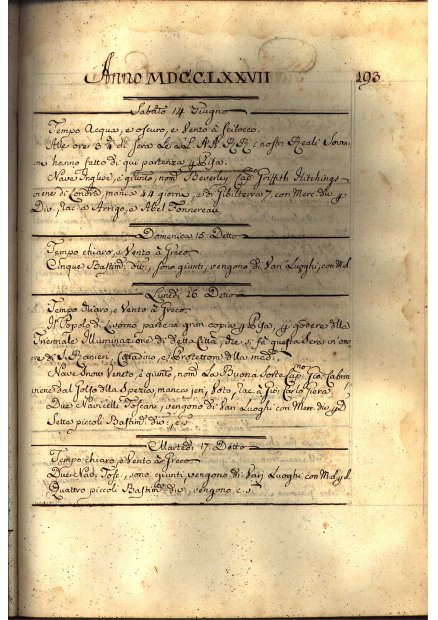 Anno MDCCLXXVII
193
Sabato 14 Giugno
Tempo Acqua, e oscuro, e Vento à Scilocco.
Alle ore 3¼ di sera Le LL. AA. RR. i nostri Reali Sovra-
ni hanno fatto di qui partenza p Pisa.
Nave Inglese, è giunto, nom. Beverley Cap. Griffith Hitchings
viene di Londra, manca 44 giorni, e di Gibilterra 7, con Merc. div. p
Div. rac. a Arrigo, e Abel Fonnereau
Domenica 15 Detto
Tempo chiaro, e Vento à Greco.
Cinque Bastim. div., sono giunti, vengono di Vari Luoghi, con M.d.
Lunedi 16 Detto
Tempo chiaro, e Vento à Greco.
Il Popolo di Livorno parte in gran copia p Pisa, p godere della
Triennale Illuminazione di detta Città, che si fà questa Sera in ono
re di S. Ranieri, Cittadino, e Protettore della med.
Nave Veneto, è giunto, nom. La Buona Sorte Cap. Gio.
viene dal Golfo della Spezia manca ieri, Voto, rac. à Gio. Carlo
Due Navicelli Toscani, vengono di Vari Luoghi con Merc. div. p D
Setta piccoli Bastim. div., e.s.
Martedi 17 Detto
Tempo chiaro, e Vento à Greco
Due Nav. Tosc., sono giunti, vengono di Vari Luoghi con M.d. p d.
Quattro piccoli Bastim. div., vengono e.s.